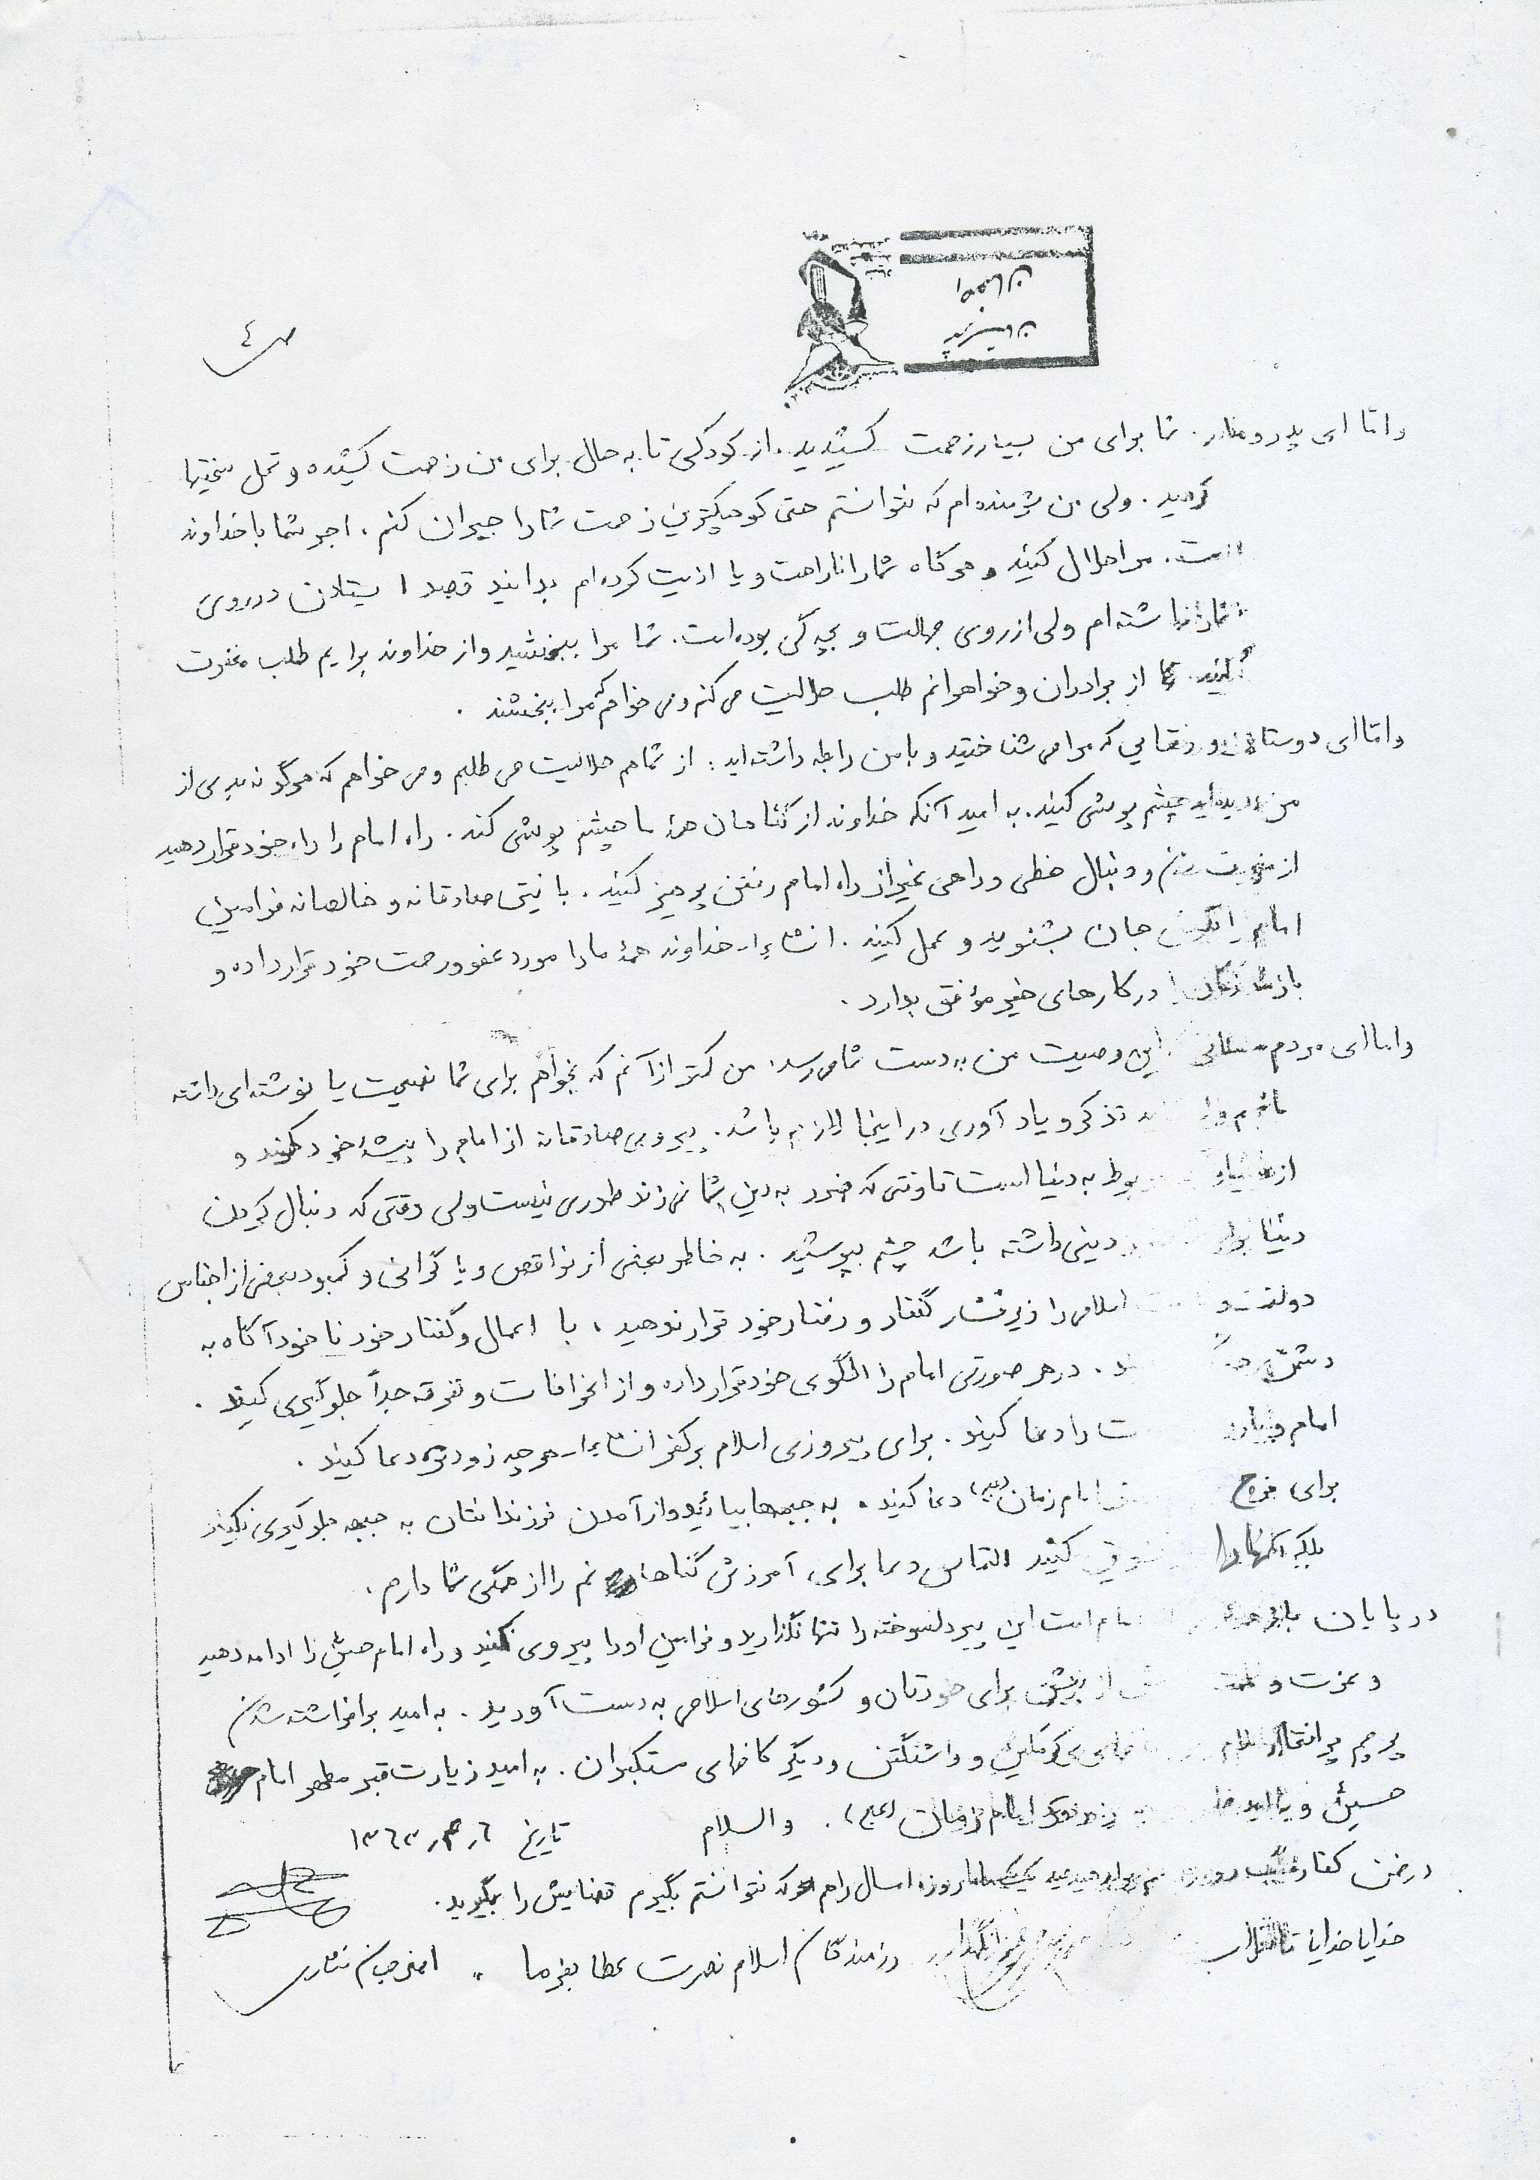 ص ٤
و امّا ای پدر و مادر. شما برای من بسیار زحمت کشیدید. از کودکی تا به حال برای من زحمت کشیده و تحمل سختیها
کردید. ولی من شرمنده‌ام که نتوانستم حتی کوچکترین زحمت شما را جبران کنم. اجر شما با خداوند
است. مرا حلال کنید و هرگاه شما را ناراحت و یا اذیت کرده‌ام بدانید قصد ایستادن در روی
شما را نداشته‌ام ولی از روی جهالت و بچه‌گی بوده است. شما مرا ببخشید و از خداوند برایم طلب مغفرت
کنید. از برادران و خواهرانم طلب حلالیت می‌کنم و می‌خواهم که مرا ببخشند.
و امّا ای دوستان و رفقایی که مرا می‌شناختید و با من رابطه داشته‌اید: از شما هم حلالیت می‌طلبم و می‌خواهم که هرگونه بدی از
من دیده‌اید چشم پوشی کنید. به امید آنکه خداوند از گناهان همهٔ ما چشم پوشی کند. راه امام را راه خود قرار دهید
از و دنبال خطی و راهی غیر از راه امام رفتن پرهیز کنید. با نیتی صادقانه و خالصانه فرامین
امام را جان بشنوید و عمل کنید. انشاءا... خداوند همهٔ ما را مورد عفو و رحمت خود قرار داده و
در کارهای خیر مؤفق بدارد.
و اما ای مردم این وصیت من به دست شما می‌رسد: من کمتر از آنم که بخواهم برای شما نصیحت یا نوشته‌ای داشته
تذکر و یادآوری در اینجا لازم باشد. پیروی صادقانه از امام را پیشهٔ خود کنید و
از مربوط به دنیا است تا وقتی که ضرر به دین شما نمی‌زند طوری نیست ولی وقتی که دنبال کردن
دنیا دینی داشته باشد چشم بپوشید. به خاطر بعضی از نواقص و یا گرانی و کمبود بعضی از اجناس
دولت و اسلامی را زیر فشار گفتار و رفتار خود قرار ندهید، با اعمال و گفتار خود ناخودآگاه به
دشمن. در هر صورتی امام را الگوی خود قرار داده و از انحرافات و تفرقه جداً جلوگیری کنید.
امام و را دعا کنید. برای پیروزی اسلام بر کفر انشاءا... هر چه زودتر دعا کنید.
برای فرج امام زمان (عج) دعا کنید. به جبهه‌ها بیائید و از آمدن فرزندانتان به جبهه جلوگیری نکنید
بلکه آنها را تشویق کنید التماس دعا برای آمرزش گناهانم را از همگی شما دارم.
در پایان امام امت این پیر دلسوخته را تنها نگذارید و فرامین او را پیروی کنید و راه امام حسین را ادامه دهید
و عزت و برای خودتان و کشورهای اسلامی به دست آورید. به امید برافراشته شدن
پرچم پر افتخار اسلام کرملین و واشنگتن و دیگر کاخهای مستکبران. به امید زیارت قبر مطهر امام
حسین و امام زمان (عج). والسلام تاریخ ۱۳٦۳
در ضمن کفاره روزه ماه روزه امسال را هم که نتوانستم بگیرم قضایش را بگیرید.
خدایا خدایا تا انقلاب رزمندگان اسلام نصرت عطا بفرما.